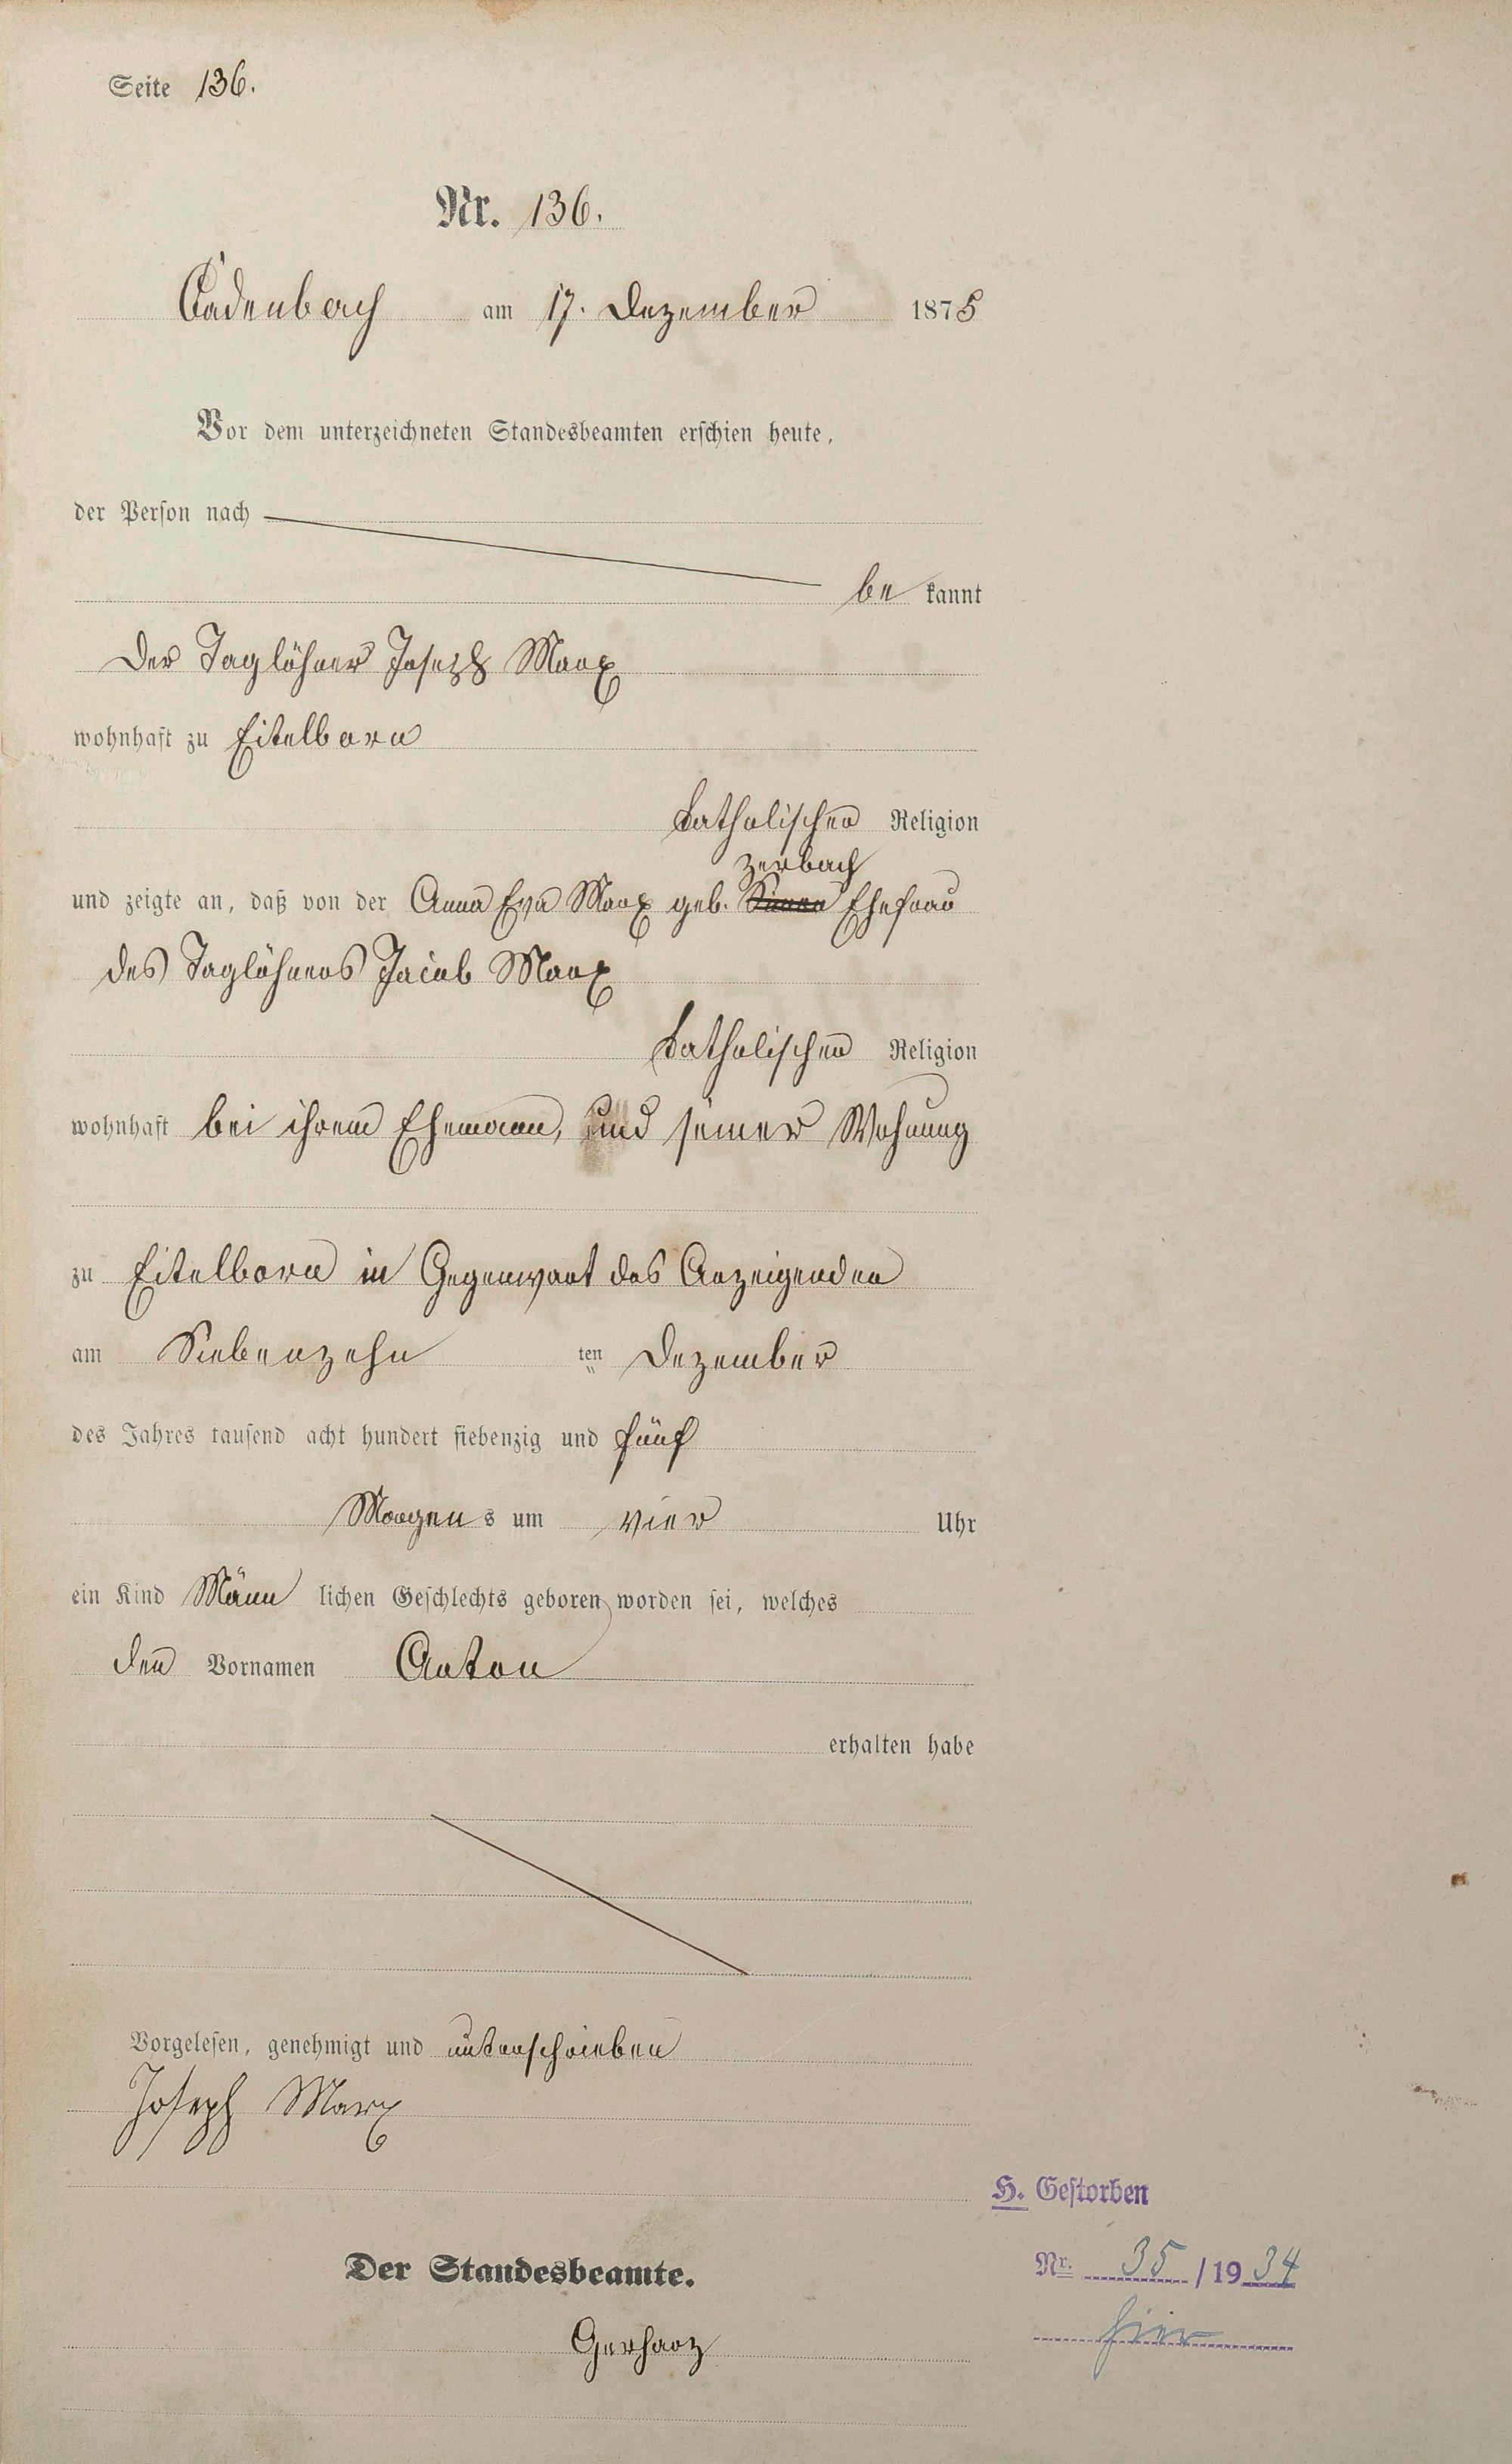 Seite 136.
Nr. 136.
Cadenbach am 17. Dezember 1875
Vor dem unterzeichneten Standesbeamten erschien heute,
der Person nach
be kannt
der Taglöhner Joseph Marx
wohnhaft zu Eitelborn
katholischen Religion
Zerbach
und zeigte an, daß von der Anna Eva Marx geb. Ehefrau
des Taglöhners Jacob Marx
katholischen Religion
wohnhaft bei ihrem Ehemann, und seiner Wohnung
zu Eitelborn in Gegenwart des Anzeigenden
am Siebenzehn ten Dezember
des Jahres tausend acht hundert siebenzig und fünf
Morgen s um vier Uhr
ein Kind Männ lichen Geschlechts geboren worden sei, welches
den Vornamen Anton
erhalten habe
Vorgelesen, genehmigt und unterschrieben
Joseph Marx
H. Gestorben
Nr. 35 / 19 34
hier
Der Standesbeamte.
Gerharz